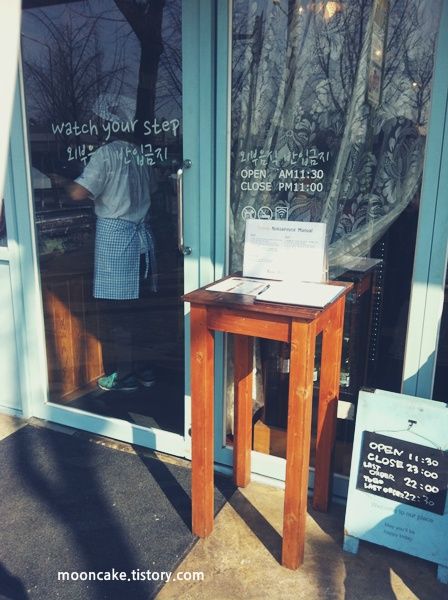 watch your step
외부음식 반입금지
외부음식 반입금지
OPEN AM11:30
CLOSE PM11:00
Manual
OPEN 11:30
CLOSE 23:00
LAST
ORDER 22:00
LAST ORDER 22:30
Welcome to our place
May you'll be
happy today
mooncake.tistory.com